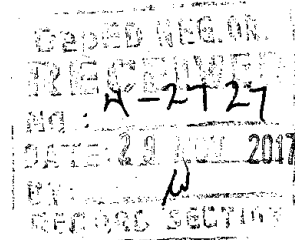 DepED NEG. OR.
RECEIVED
NO: A-2727
DATE: 29 2017
BY:
RECORD SECTION